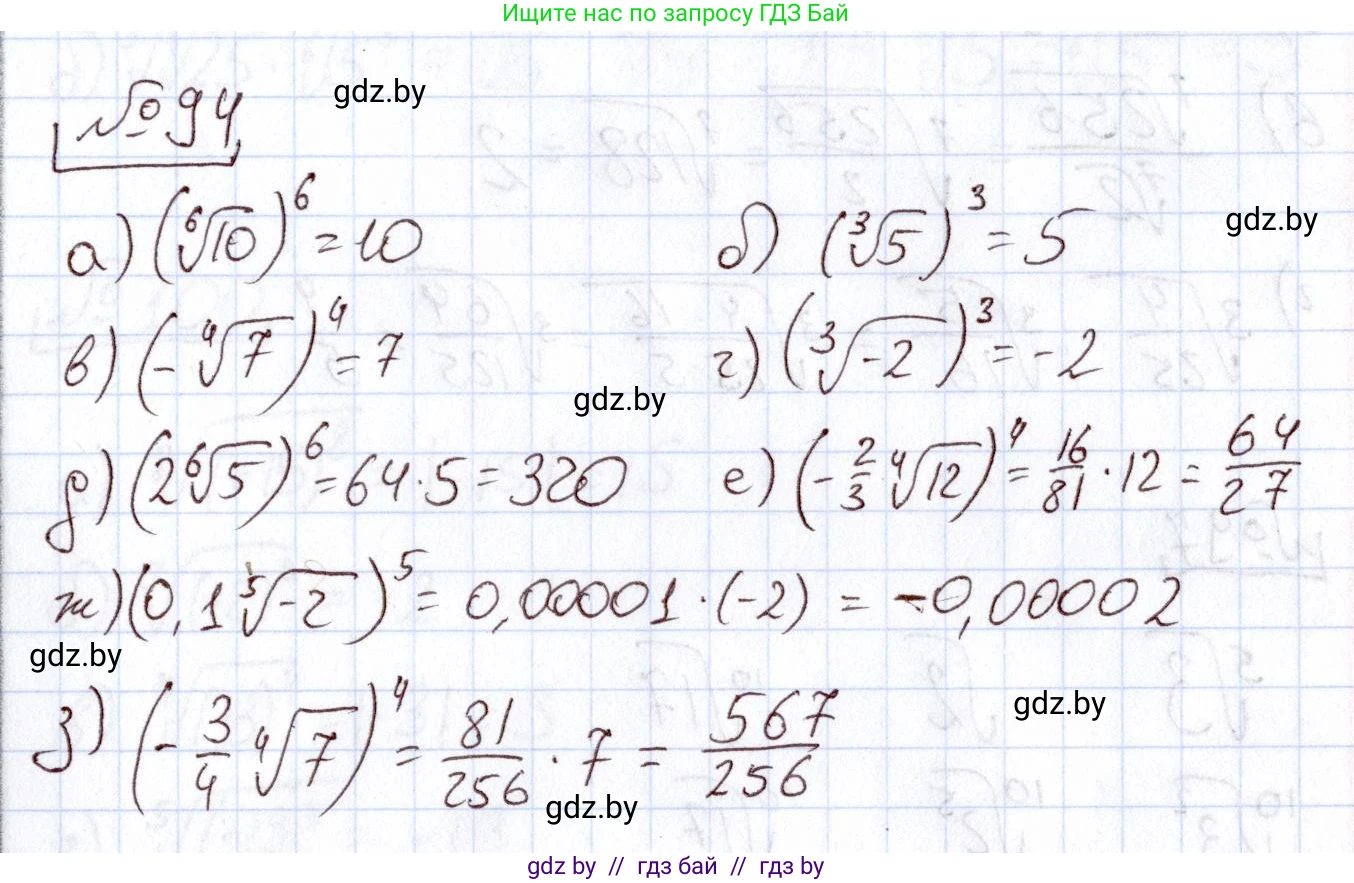 Ищите нас по запросу ГДЗ Бай
№94
gdz.by
а) (⁶√10)⁶ = 10
б) (³√5)³ = 5
gdz.by
в) (-⁴√7)⁴ = 7
г) (³√-2)³ = -2
gdz.by
д) (2⁶√5)⁶ = 64·5 = 320
е) (-2/3 ⁴√12)⁴ = 16/81 · 12 = 64/27
ж) (0,1 ⁵√-2)⁵ = 0,00001 · (-2) = -0,00002
gdz.by
з) (-3/4 ⁴√7)⁴ = 81/256 · 7 = 567/256
gdz.by
gdz.by
gdz by // гдз бай // гдз by